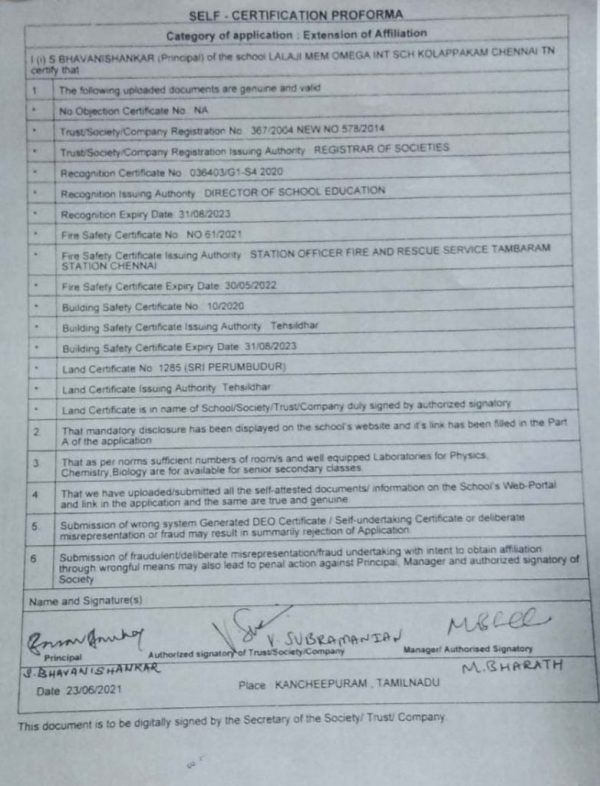 SELF - CERTIFICATION PROFORMA
Category of application : Extension of Affiliation
I (i) S BHAVANISHANKAR (Principal) of the school LALAJI MEM OMEGA INT SCH KOLAPPAKAM CHENNAI TN
certify that
1 The following uploaded documents are genuine and valid
* No Objection Certificate No NA
* Trust/Society/Company Registration No 367/2004 NEW NO 578/2014
* Trust/Society/Company Registration Issuing Authority REGISTRAR OF SOCIETIES
* Recognition Certificate No 036403/G1-S4 2020
* Recognition Issuing Authority DIRECTOR OF SCHOOL EDUCATION
* Recognition Expiry Date 31/08/2023
* Fire Safety Certificate No NO 61/2021
* Fire Safety Certificate Issuing Authority STATION OFFICER FIRE AND RESCUE SERVICE TAMBARAM
STATION CHENNAI
* Fire Safety Certificate Expiry Date 30/05/2022
* Building Safety Certificate No 10/2020
* Building Safety Certificate Issuing Authority Tehsildhar
* Building Safety Certificate Expiry Date 31/08/2023
* Land Certificate No 1285 (SRI PERUMBUDUR)
* Land Certificate Issuing Authority Tehsildhar
* Land Certificate is in name of School/Society/Trust/Company duly signed by authorized signatory
2 That mandatory disclosure has been displayed on the school's website and it's link has been filled in the Part
A of the application
3 That as per norms sufficient numbers of room/s and well equipped Laboratories for Physics,
Chemistry,Biology are for available for senior secondary classes
4 That we have uploaded/submitted all the self-attested documents/ information on the School's Web-Portal
and link in the application and the same are true and genuine
5 Submission of wrong system Generated DEO Certificate / Self-undertaking Certificate or deliberate
misrepresentation or fraud may result in summarily rejection of Application
6 Submission of fraudulent/deliberate misrepresentation/fraud undertaking with intent to obtain affiliation
through wrongful means may also lead to penal action against Principal, Manager and authorized signatory of
Society
Name and Signature(s)
V. SUBRAMANIAN
Principal Authorized signatory of Trust/Society/Company Manager/ Authorised Signatory
S. BHAVANISHANKAR M. BHARATH
Date 23/06/2021 Place KANCHEEPURAM , TAMILNADU
This document is to be digitally signed by the Secretary of the Society/ Trust/ Company